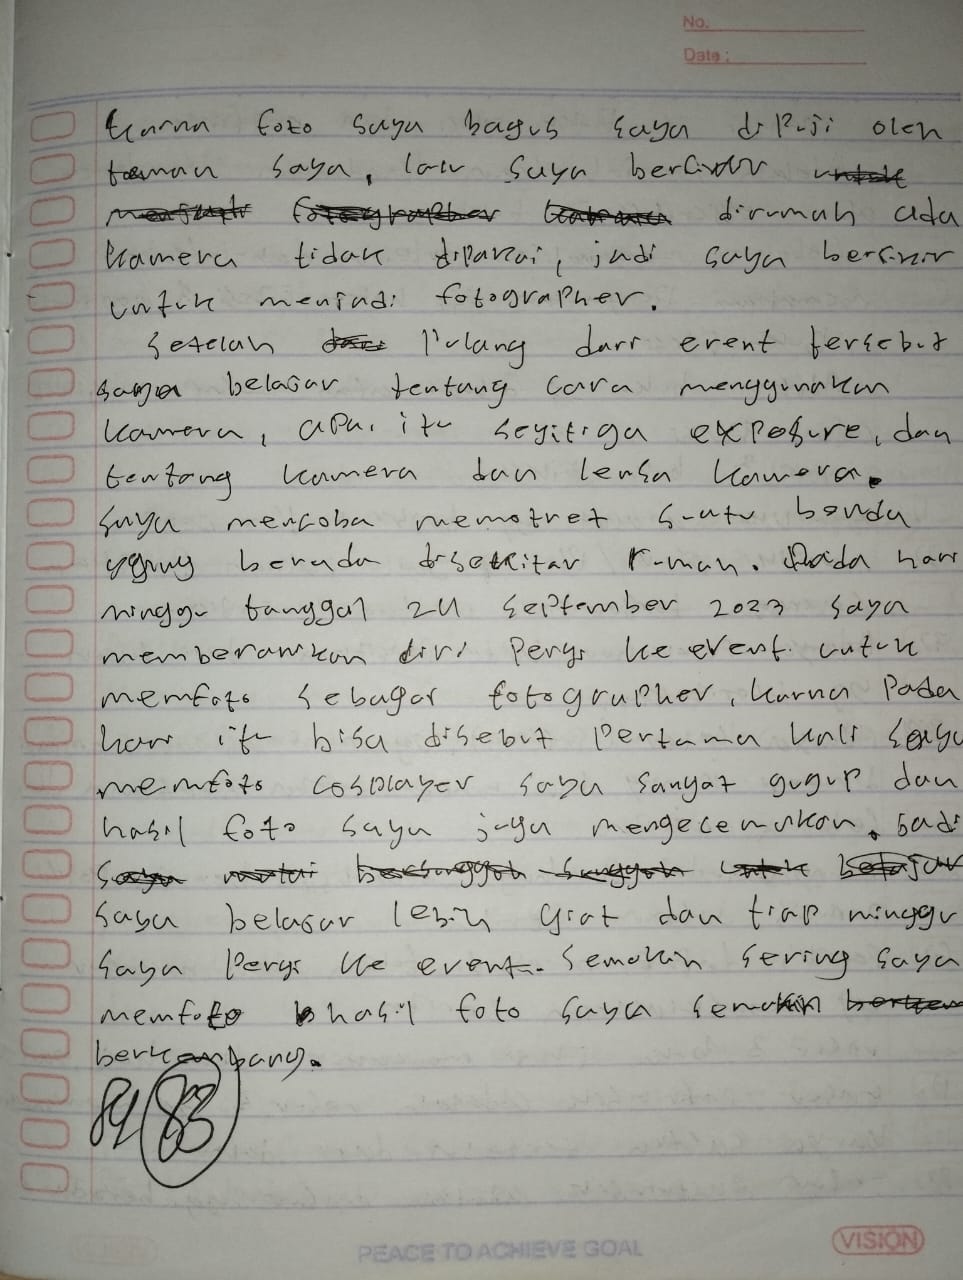 No.
Date :
Karna foto saya bagus saya dipuji oleh
teman saya, lalu saya berfikir untuk
menjadi fotographer karena dirumah ada
kamera tidak dipakai, jadi saya berfikir
untuk menjadi fotographer.
Setelah dari Pulang dari event tersebut
saya belajar tentang cara menggunakan
kamera, apa itu segitiga exposure, dan
tentang kamera dan lensa kamera.
saya mencoba memotret suatu benda
yang berada disekitar rumah. Pada hari
minggu tanggal 24 September 2023 saya
memberanikan diri Pergi ke event untuk
memfoto sebagai fotographer, karna Pada
hari itu bisa disebut Pertama kali saya
memfoto cosplayer saya sangat gugup dan
hasil foto saya juga mengecewakan. Jadi
saya mulai bersunggoh sunggoh untuk belajar
saya belajar lebih giat dan tiap minggu
saya Pergi ke event. Semakin sering saya
memfoto hasil foto saya semakin
berkembang.
84 83
PEACE TO ACHIEVE GOAL
VISION